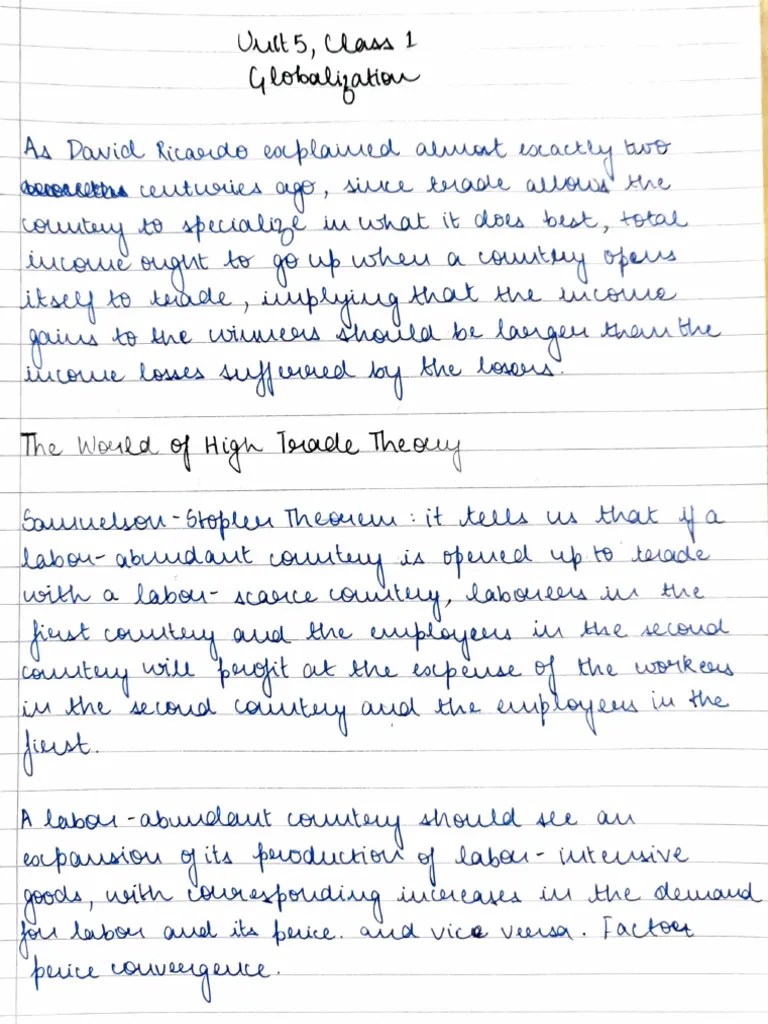 Unit 5, Class 1
Globalization
As David Ricardo explained almost exactly two
centuries ago, since trade allows the
country to specialize in what it does best, total
income ought to go up when a country opens
itself to trade, implying that the income
gains to the winners should be larger than the
income losses suffered by the losers.
The World of High Trade Theory
Samuelson-Stopler Theorem: it tells us that if a
labor-abundant country is opened up to trade
with a labor-scarce country, laborers in the
first country and the employers in the second
country will profit at the expense of the workers
in the second country and the employers in the
first.
A labor-abundant country should see an
expansion of its production of labor-intensive
goods, with corresponding increases in the demand
for labor and its price. and vice versa. Factor
price convergence.